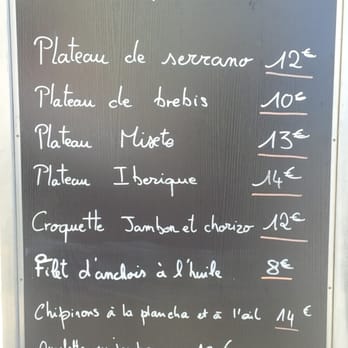 Plateau de serrano 12€
Plateau de brebis 10€
Plateau Mixte 13€
Plateau Iberique 14€
Croquette Jambon et chorizo 12€
Filet d'anchois à l'huile 8€
Chipirons à la plancha et à l'ail 14€